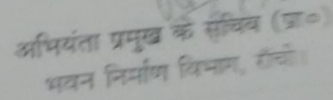 अभियंता प्रमुख के सचिव (प्रा०)
भवन निर्माण विभाग, राँची।